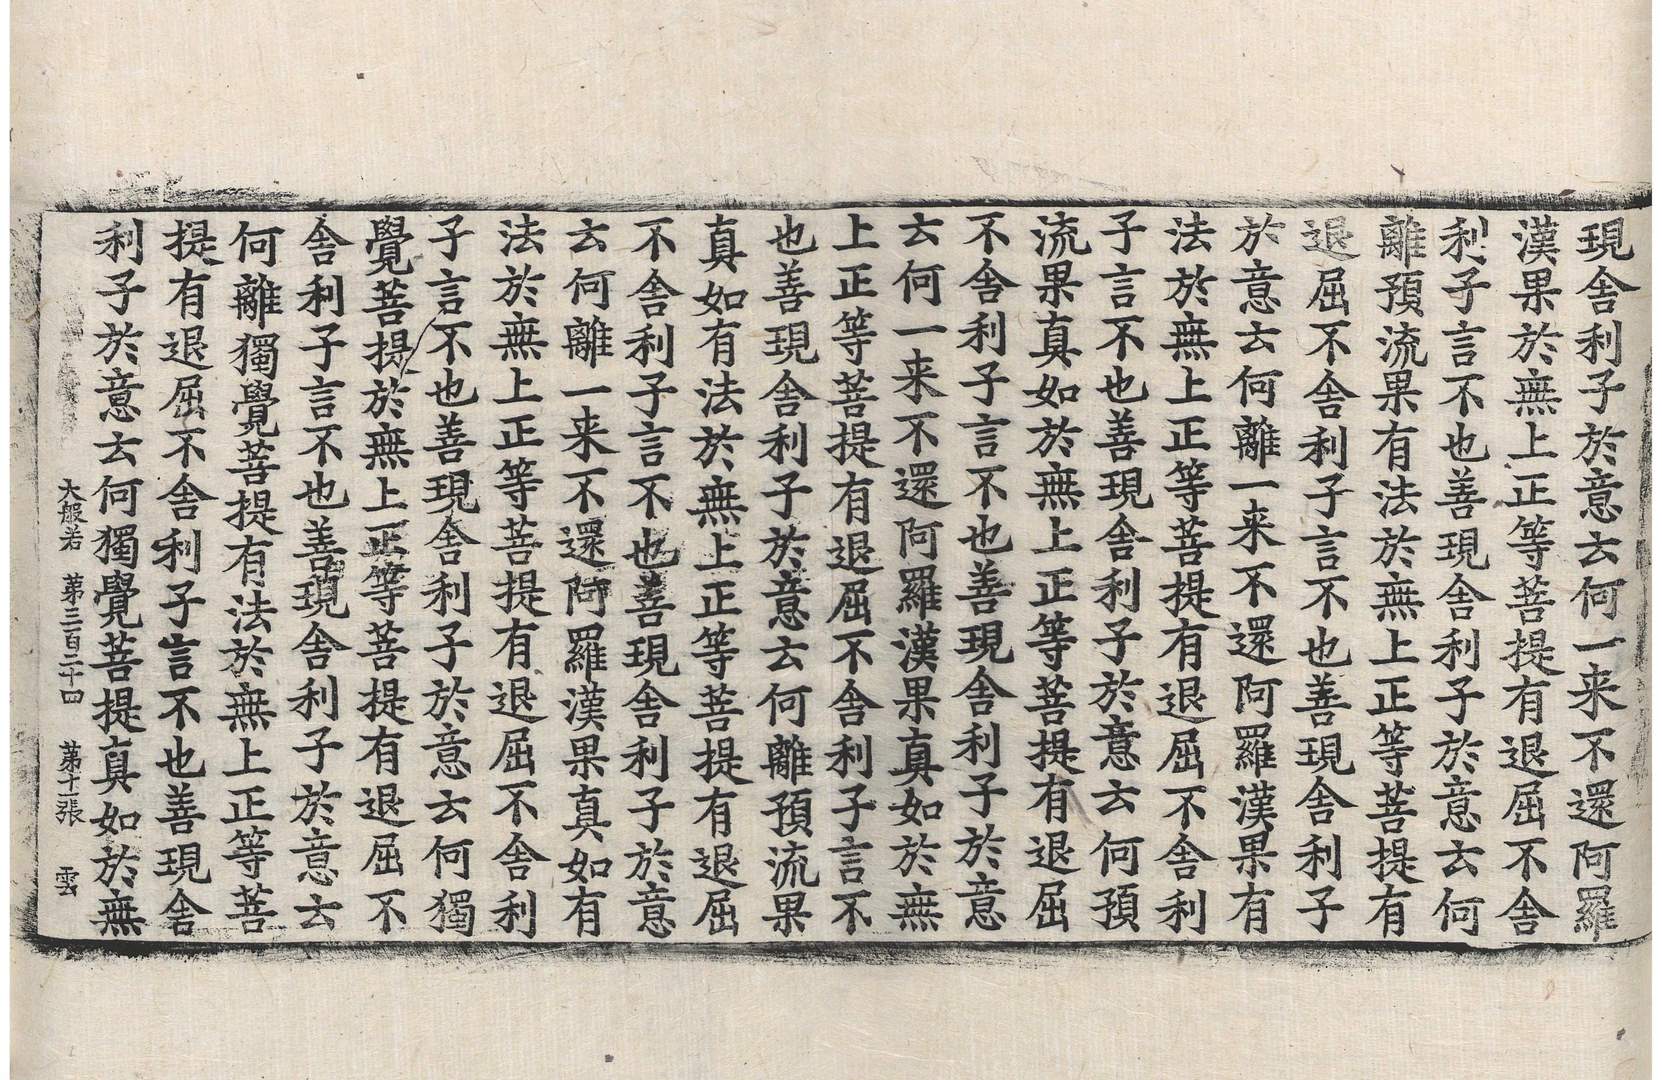 現舍利子於意云何一来不還阿羅
漢果於無上正等菩提有退屈不舍
利子言不也善現舍利子於意云何
離預流果有法於無上正等菩提有
退屈不舍利子言不也善現舍利子
於意云何離一来不還阿羅漢果有
法於無上正等菩提有退屈不舍利
子言不也善現舍利子於意云何預
流果真如於無上正等菩提有退屈
不舍利子言不也善現舍利子於意
云何一来不還阿羅漢果真如於無
上正等菩提有退屈不舍利子言不
也善現舍利子於意云何離預流果
真如有法於無上正等菩提有退屈
不舍利子言不也善現舍利子於意
云何離一来不還阿羅漢果真如有
法於無上正等菩提有退屈不舍利
子言不也善現舍利子於意云何獨
覺菩提於無上正等菩提有退屈不
舍利子言不也善現舍利子於意云
何離獨覺菩提有法於無上正等菩
提有退屈不舍利子言不也善現舍
利子於意云何獨覺菩提真如於無
大般若 第三百二十四 第十張 雲